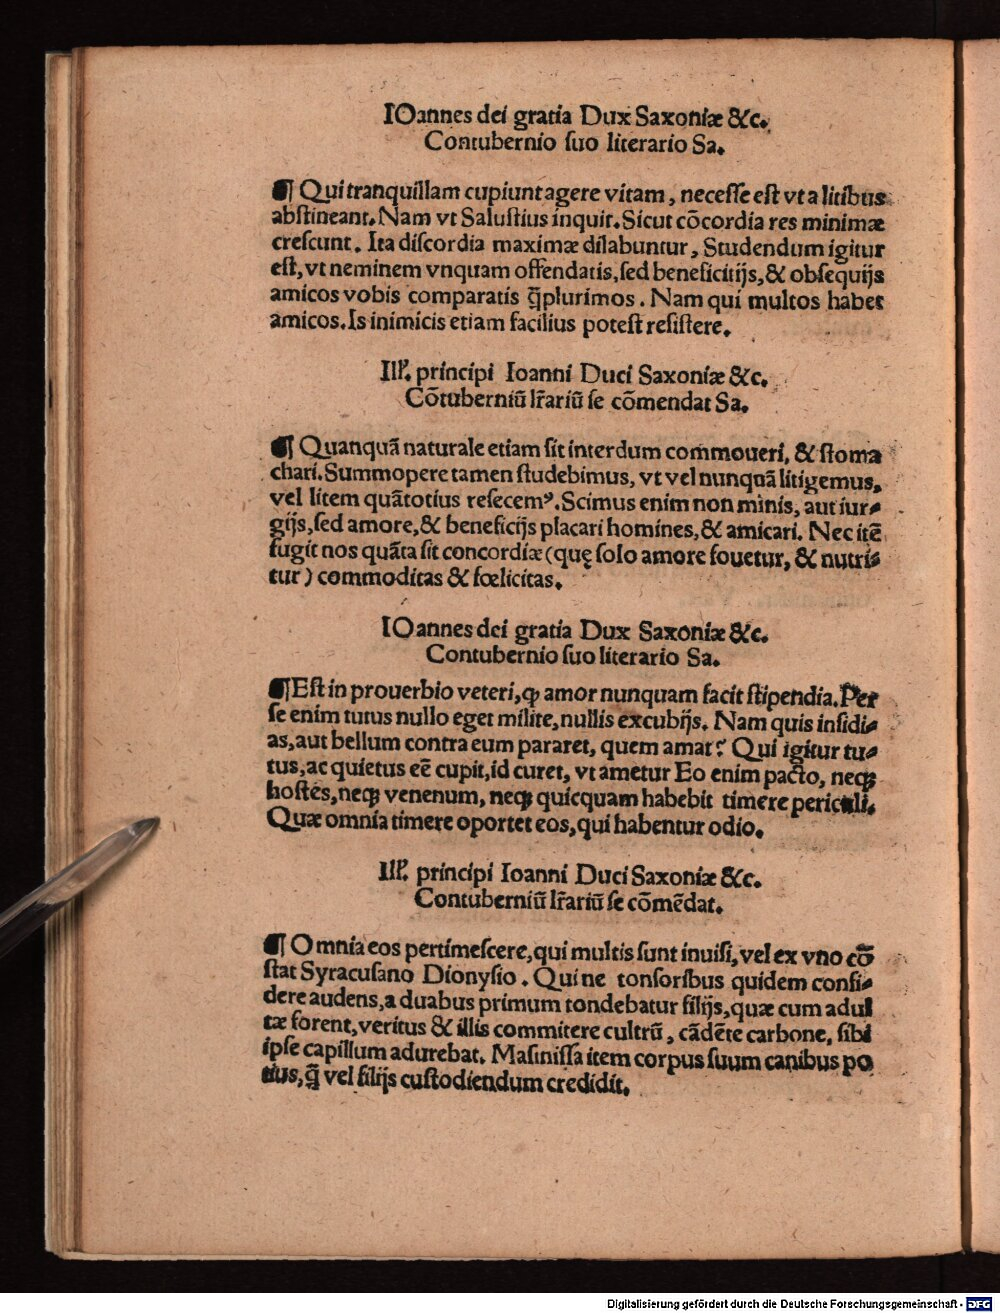 IOannes dei gratia Dux Saxoniæ &c.
Contubernio ſuo literario Sa.
¶ Qui tranquillam cupiunt agere vitam, neceſſe eſt vt a litibus
abſtineant. Nam vt Saluſtius inquit. Sicut cōcordia res minimæ
creſcunt. Ita diſcordia maximæ dilabuntur, Studendum igitur
eſt, vt neminem vnquam offendatis, ſed beneficitijs, & obſequijs
amicos vobis comparatis q̄plurimos. Nam qui multos habet
amicos. Is inimicis etiam facilius poteſt reſiſtere.
Ill'. principi Ioanni Duci Saxoniæ &c.
Cōtuberniū lr̄ariū ſe cōmendat Sa.
¶ Quanquā naturale etiam ſit interdum commoueri, & ſtoma
chari. Summopere tamen ſtudebimus, vt vel nunquā litigemus,
vel litem quātotius reſecemꝰ. Scimus enim non minis, aut iur⸗
gijs, ſed amore, & beneficijs placari homines, & amicari. Nec itē
fugit nos quāta ſit concordiæ (quę ſolo amore fouetur, & nutri⸗
tur) commoditas & fœlicitas.
IOannes dei gratia Dux Saxoniæ &c.
Contubernio ſuo literario Sa.
¶Eſt in prouerbio veteri, ꝙ amor nunquam facit ſtipendia. Per
ſe enim tutus nullo eget milite, nullis excubijs. Nam quis inſidi⸗
as, aut bellum contra eum pararet, quem amat? Qui igitur tu⸗
tus, ac quietus eē cupit, id curet, vt ametur Eo enim pacto, neqꝫ
hoſtes, neqꝫ venenum, neqꝫ quicquam habebit timere periculi.
Quæ omnia timere oportet eos, qui habentur odio.
Ill'. principi Ioanni Duci Saxoniæ &c.
Contuberniū lr̄ariū ſe cōmēdat.
¶ Omnia eos pertimeſcere, qui multis ſunt inuiſi, vel ex vno cō
ſtat Syracuſano Dionyſio. Qui ne tonſoribus quidem confi⸗
dere audens, a duabus primum tondebatur filijs, quæ cum adul
tæ forent, veritus & illis commitere cultrū, cādēte carbone, ſibi
ipſe capillum adurebat. Maſiniſſa item corpus ſuum canibus po
tius, q̄ vel filijs cuſtodiendum credidit.
Digitalisierung gefördert durch die Deutsche Forschungsgemeinschaft - DFG